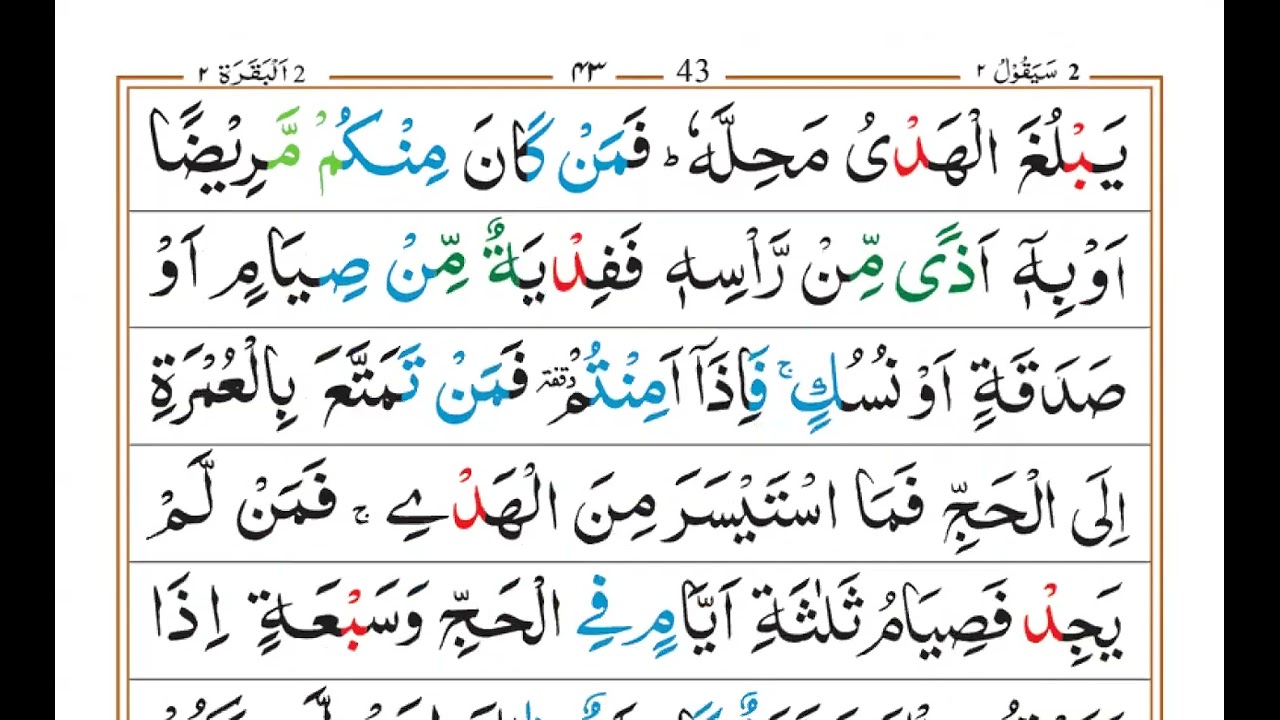 2 سَيَقُوْلُ ٢ 43 ۴۳ 2 اَلْبَقَرَة ٢
يَبْلُغَ الْهَدْىُ مَحِلَّهٗ ؕ فَمَنْ كَانَ مِنْكُمْ مَّرِيْضًا
اَوْ بِهٖۤ اَذًى مِّنْ رَّاْسِهٖ فَفِدْيَةٌ مِّنْ صِيَامٍ اَوْ
صَدَقَةٍ اَوْ نُسُكٍ ۚ فَاِذَاۤ اَمِنْتُمْ ٝ فَمَنْ تَمَتَّعَ بِالْعُمْرَةِ
اِلَى الْحَجِّ فَمَا اسْتَيْسَرَ مِنَ الْهَدْىِ ۚ فَمَنْ لَّمْ
يَجِدْ فَصِيَامُ ثَلٰثَةِ اَيَّامٍ فِى الْحَجِّ وَسَبْعَةٍ اِذَا